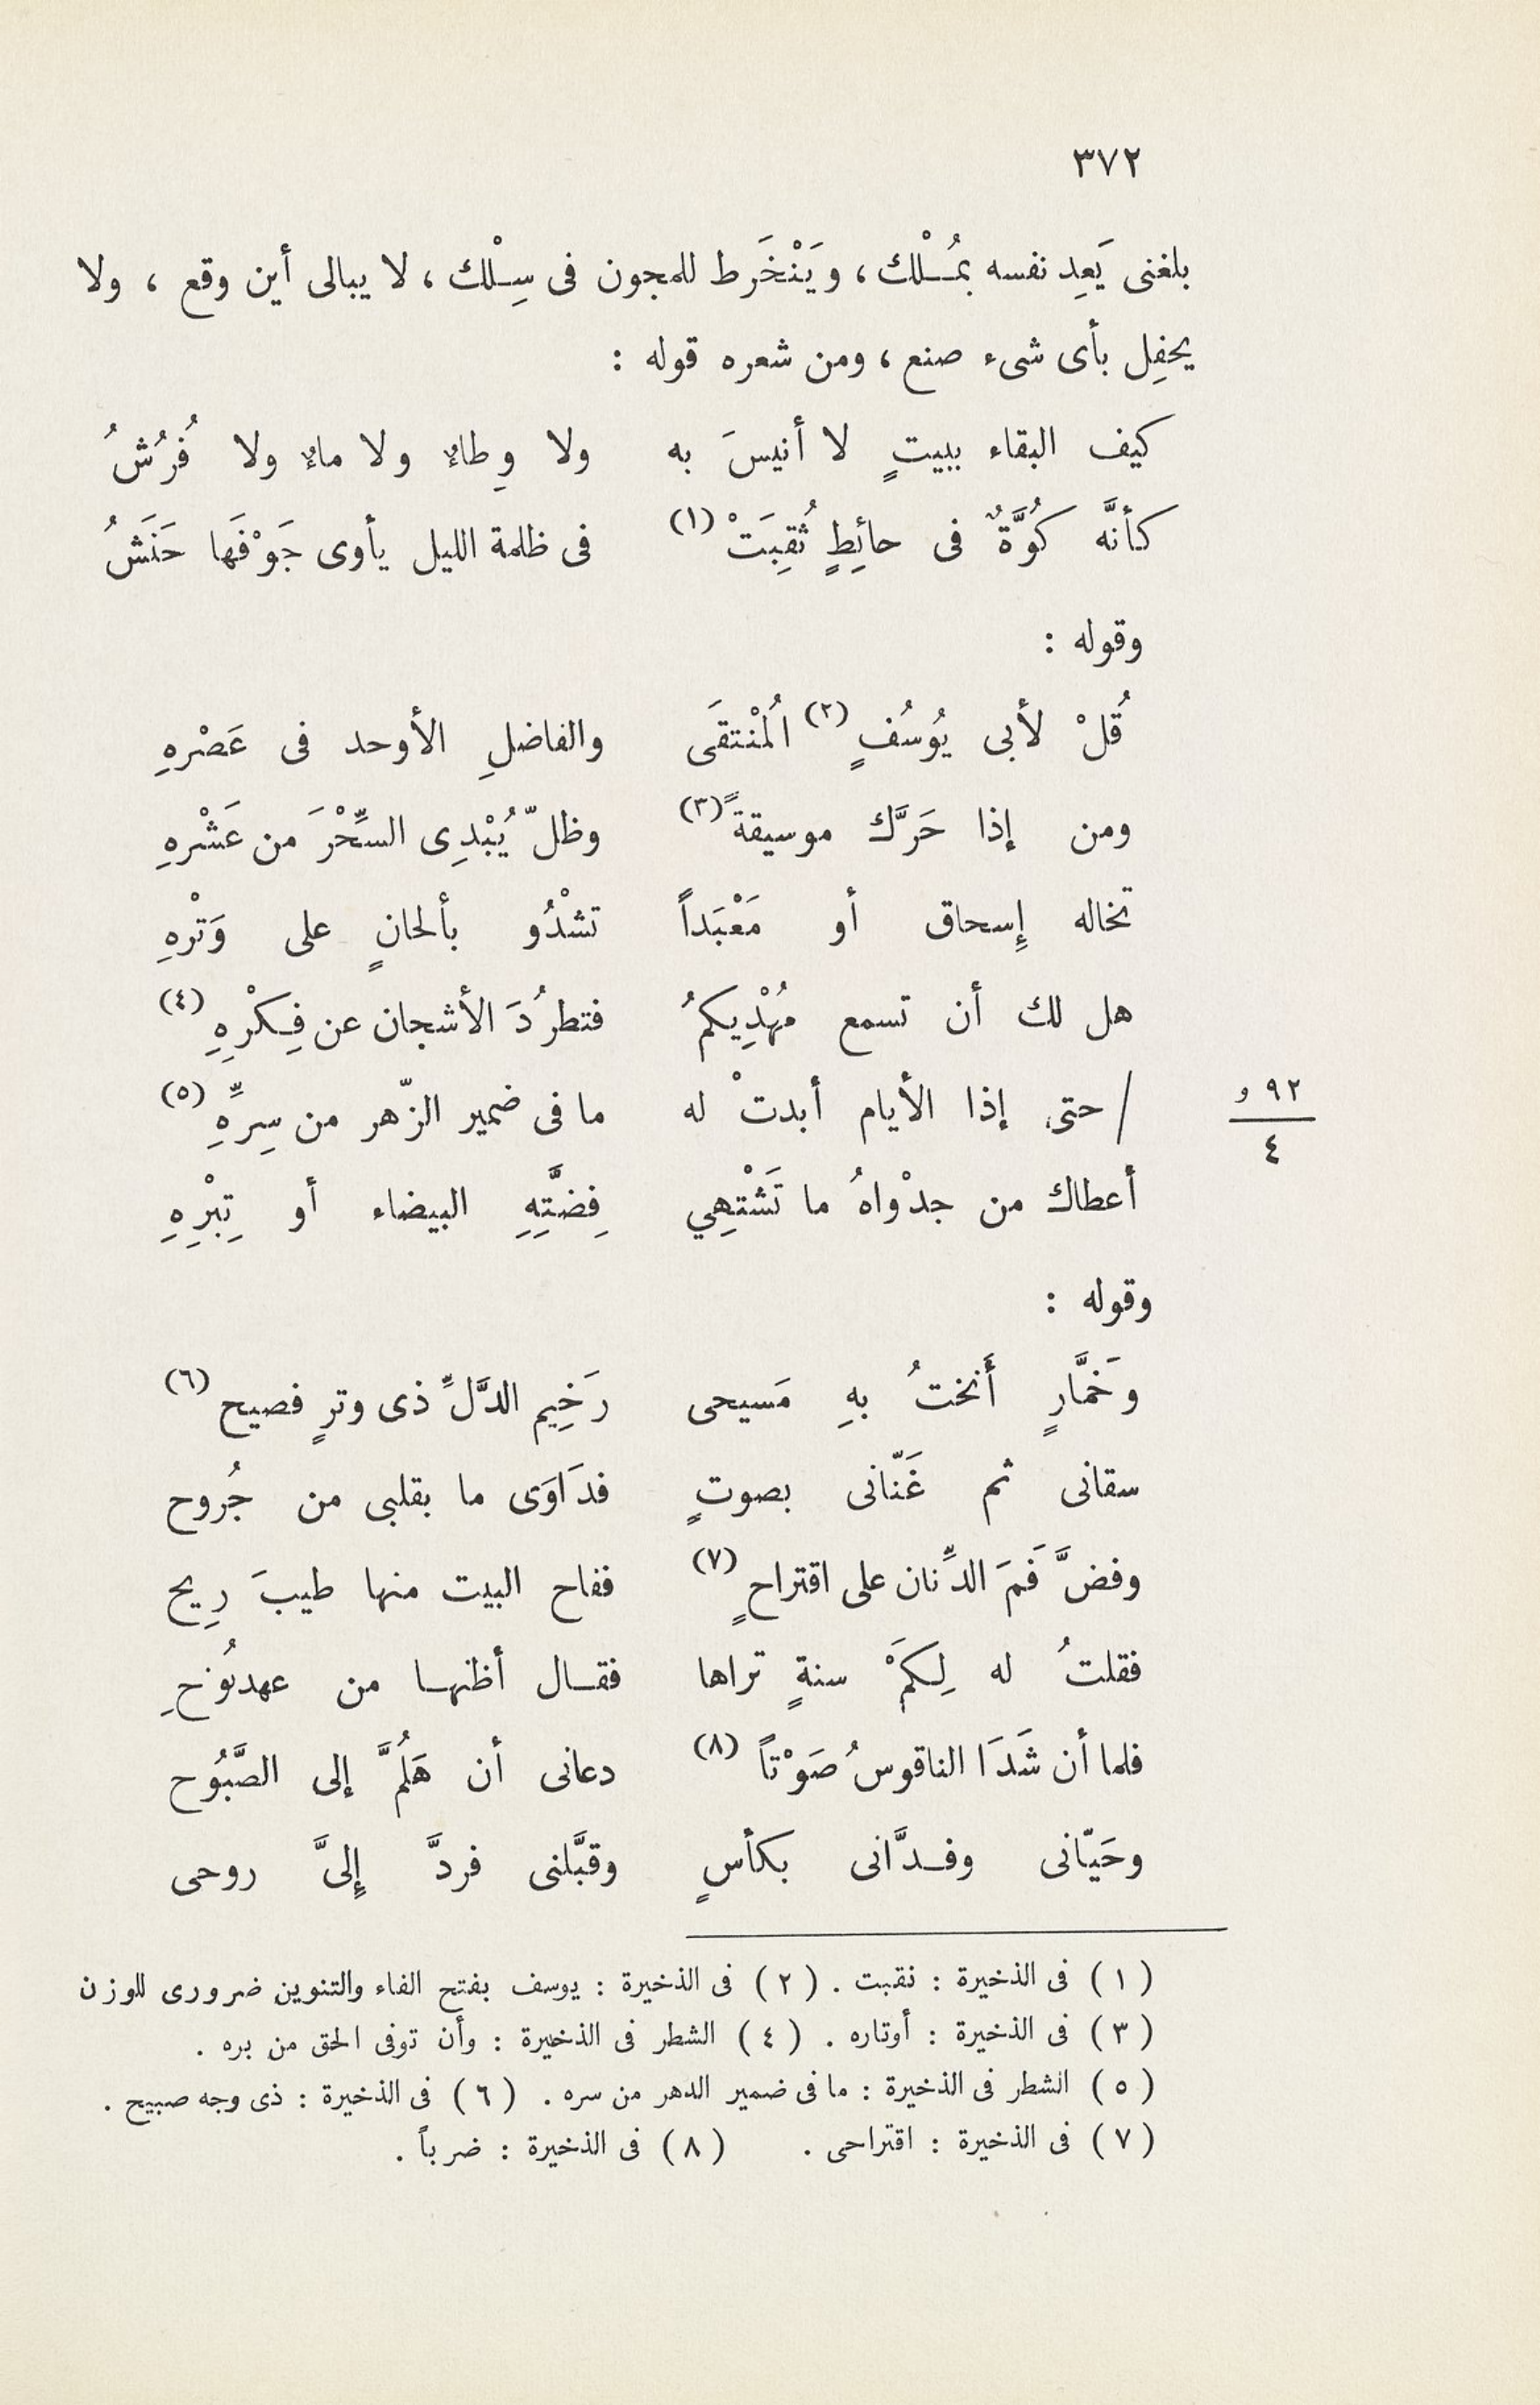 ٣٧٢
بلغنى يَعِد نفسه بمُـلْك ، ويَنْخَرط للمجون فى سِـلْك ، لا يبالى أين وقع ، ولا
يحفِل بأى شىء صنع ، ومن شعره قوله :
كيف البقاء ببيتٍ لا أنيسَ به ولا وِطاءٌ ولا ماءٌ ولا فُرُشُ
كأنَّه كُوَّةٌ فى حائِطٍ ثُقِبَتْ (١) فى ظلمة الليل يأوى جَوْفَها حَنَشُ
وقوله :
قُلْ لأبى يُوسُفٍ (٢) المُنْتقَى والفاضلِ الأوحد فى عَصْرهِ
ومن إذا حَرَّك موسيقةً (٣) وظلّ يُبْدِى السِّحْرَ من عَشْرهِ
تخاله إِسحاق أو مَعْبَداً تشْدُو بألحانٍ على وَتْرهِ
هل لك أن تسمع مُهْدِيكمُ فتطرُدَ الأشجان عن فِكْرِهِ (٤)
/ حتى إذا الأيام أبدتْ له ما فى ضمير الزّهر من سِرِّهِ (٥)
٩٢ و
٤
أعطاك من جدْواهُ ما تَشْتهِي فِضَّتِهِ البيضاء أو تِبْرِهِ
وقوله :
وخَمَّارٍ أَنختُ بهِ مَسيحى رَخِيم الدَّلِّ ذى وترٍ فصيح (٦)
سقانى ثم غَنّانى بصوتٍ فدَاوَى ما بقلبى من جُروح
وفضَّ فَمَ الدِّنان على اقتراحٍ (٧) ففاح البيت منها طيبَ رِيح
فقلتُ له لِكَمْ سنةٍ تراها فقـال أظنهـا من عهدنُوحِ
فلما أن شَدَا الناقوسُ صَوْتاً (٨) دعانى أن هَلُمَّ إلى الصَّبُوح
وحَيّانى وفـدَّانى بكأسٍ وقبَّلنى فردَّ إِلىَّ روحى
( ١ ) فى الذخيرة : نقبت . ( ٢ ) فى الذخيرة : يوسف بفتح الفاء والتنوين ضرورى للوزن
( ٣ ) فى الذخيرة : أوتاره . ( ٤ ) الشطر فى الذخيرة : وأن توفى الحق من بره .
( ٥ ) الشطر فى الذخيرة : ما فى ضمير الدهر من سره . ( ٦ ) فى الذخيرة : ذى وجه صبيح .
( ٧ ) فى الذخيرة : اقتراحى . ( ٨ ) فى الذخيرة : ضرباً .